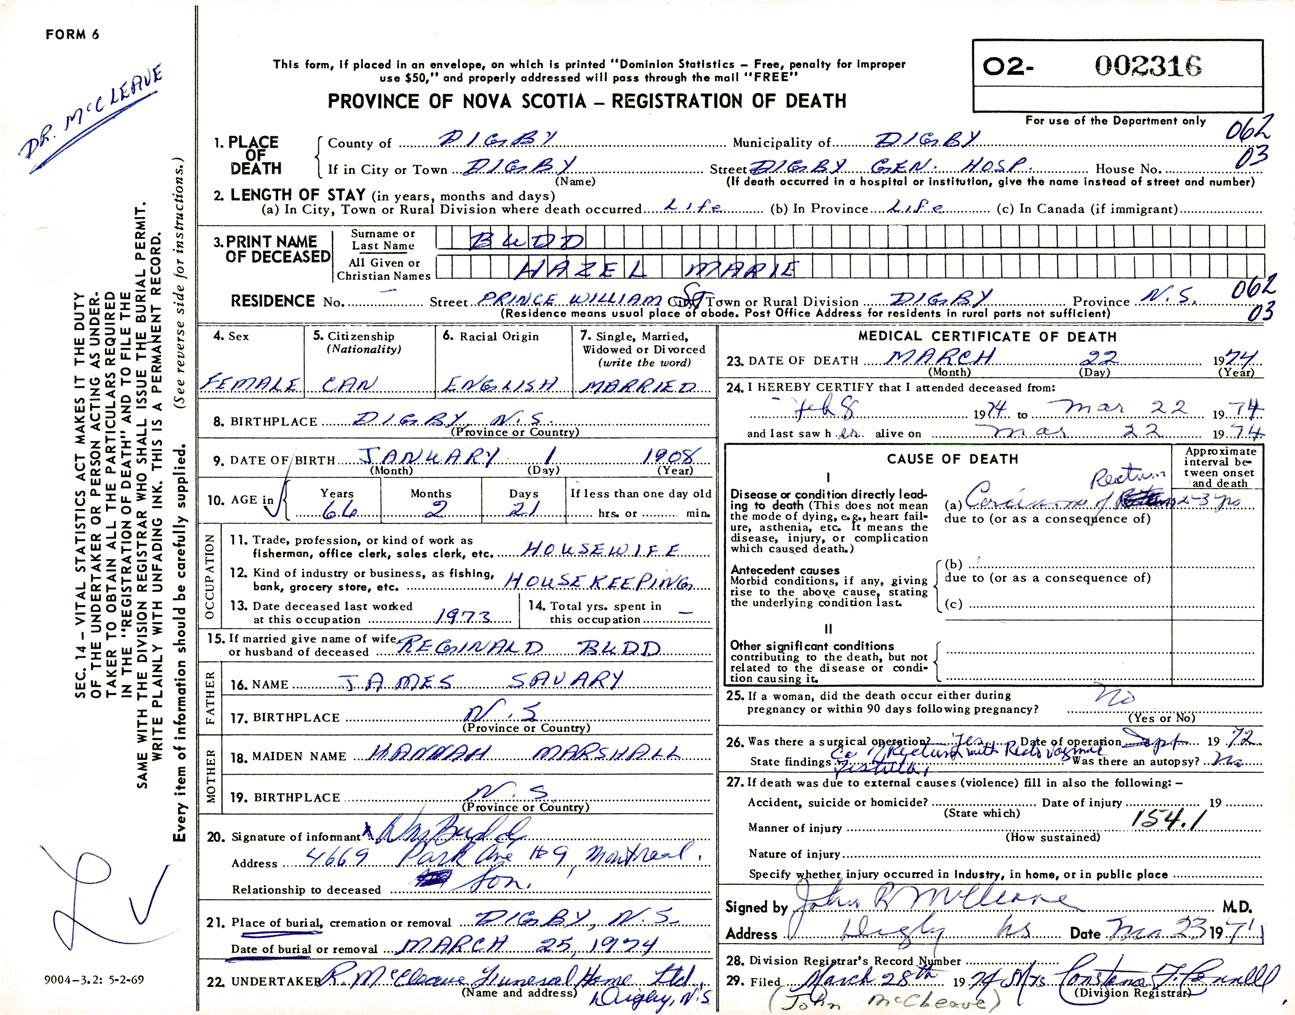 FORM 6
DR. McCLEAVE
This form, if placed in an envelope, on which is printed "Dominion Statistics – Free, penalty for improper
use $50," and properly addressed will pass through the mail "FREE"
PROVINCE OF NOVA SCOTIA – REGISTRATION OF DEATH
02- 002316
For use of the Department only
062
03
1. PLACE OF DEATH
County of DIGBY Municipality of DIGBY
If in City or Town DIGBY Street DIGBY GEN. HOSP. House No.
(Name) (If death occurred in a hospital or institution, give the name instead of street and number)
2. LENGTH OF STAY (in years, months and days)
(a) In City, Town or Rural Division where death occurred Life (b) In Province Life (c) In Canada (if immigrant)
3. PRINT NAME OF DECEASED
Surname or Last Name BUDD
All Given or Christian Names HAZEL MARIE
RESIDENCE No. – Street PRINCE WILLIAM St City, Town or Rural Division DIGBY Province N.S.
062
03
(Residence means usual place of abode. Post Office Address for residents in rural parts not sufficient)
4. Sex
FEMALE
5. Citizenship
(Nationality)
CAN
6. Racial Origin
ENGLISH
7. Single, Married,
Widowed or Divorced
(write the word)
MARRIED
8. BIRTHPLACE DIGBY, N.S.
(Province or Country)
9. DATE OF BIRTH JANUARY 1 1908
(Month) (Day) (Year)
10. AGE in
Years 66
Months 2
Days 21
If less than one day old
hrs. or min.
OCCUPATION
11. Trade, profession, or kind of work as
fisherman, office clerk, sales clerk, etc. HOUSEWIFE
12. Kind of industry or business, as fishing,
bank, grocery store, etc. HOUSEKEEPING
13. Date deceased last worked
at this occupation 1973
14. Total yrs. spent in
this occupation –
15. If married give name of wife
or husband of deceased REGINALD BUDD
FATHER
16. NAME JAMES SAVARY
17. BIRTHPLACE N.S
(Province or Country)
MOTHER
18. MAIDEN NAME HANNAH MARSHALL
19. BIRTHPLACE N.S.
(Province or Country)
20. Signature of informant X Wm Budd
Address 4669 Park Ave #9, Montreal.
Relationship to deceased Son.
21. Place of burial, cremation or removal DIGBY, N.S.
Date of burial or removal MARCH 25, 1974
22. UNDERTAKER R. McCleave Funeral Home Ltd,
(Name and address) Digby, N.S
MEDICAL CERTIFICATE OF DEATH
23. DATE OF DEATH MARCH 22 1974
(Month) (Day) (Year)
24. I HEREBY CERTIFY that I attended deceased from:
Feb 8 1974 to Mar 22 1974
and last saw her alive on Mar 22 1974
CAUSE OF DEATH
Approximate interval between onset and death
I
Disease or condition directly leading to death (This does not mean the mode of dying, e.g., heart failure, asthenia, etc. It means the disease, injury, or complication which caused death.)
(a) Carcinoma of Rectum 2-3 yrs
due to (or as a consequence of)
Antecedent causes
Morbid conditions, if any, giving rise to the above cause, stating the underlying condition last.
(b)
due to (or as a consequence of)
(c)
II
Other significant conditions
contributing to the death, but not related to the disease or condition causing it.
25. If a woman, did the death occur either during
pregnancy or within 90 days following pregnancy? No
(Yes or No)
26. Was there a surgical operation? Yes Date of operation Sept 1972
State findings Ca of Rectum with Recto vaginal Fistula, Was there an autopsy? No
27. If death was due to external causes (violence) fill in also the following: –
Accident, suicide or homicide? Date of injury 19
(State which)
154.1
Manner of injury
(How sustained)
Nature of injury
Specify whether injury occurred in Industry, in home, or in public place
Signed by John R McCleave M.D.
Address Digby NS Date Mar 23 1974
28. Division Registrar's Record Number
29. Filed March 28th 1974 Mrs Constance F. Connell
(Division Registrar)
(John McCleave)
SEC. 14 – VITAL STATISTICS ACT MAKES IT THE DUTY
OF THE UNDERTAKER OR PERSON ACTING AS UNDER-
TAKER TO OBTAIN ALL THE PARTICULARS REQUIRED
IN THE "REGISTRATION OF DEATH" AND TO FILE THE
SAME WITH THE DIVISION REGISTRAR WHO SHALL ISSUE THE BURIAL PERMIT.
WRITE PLAINLY WITH UNFADING INK. THIS IS A PERMANENT RECORD.
Every item of information should be carefully supplied. (See reverse side for instructions.)
9004-3.2: 5-2-69